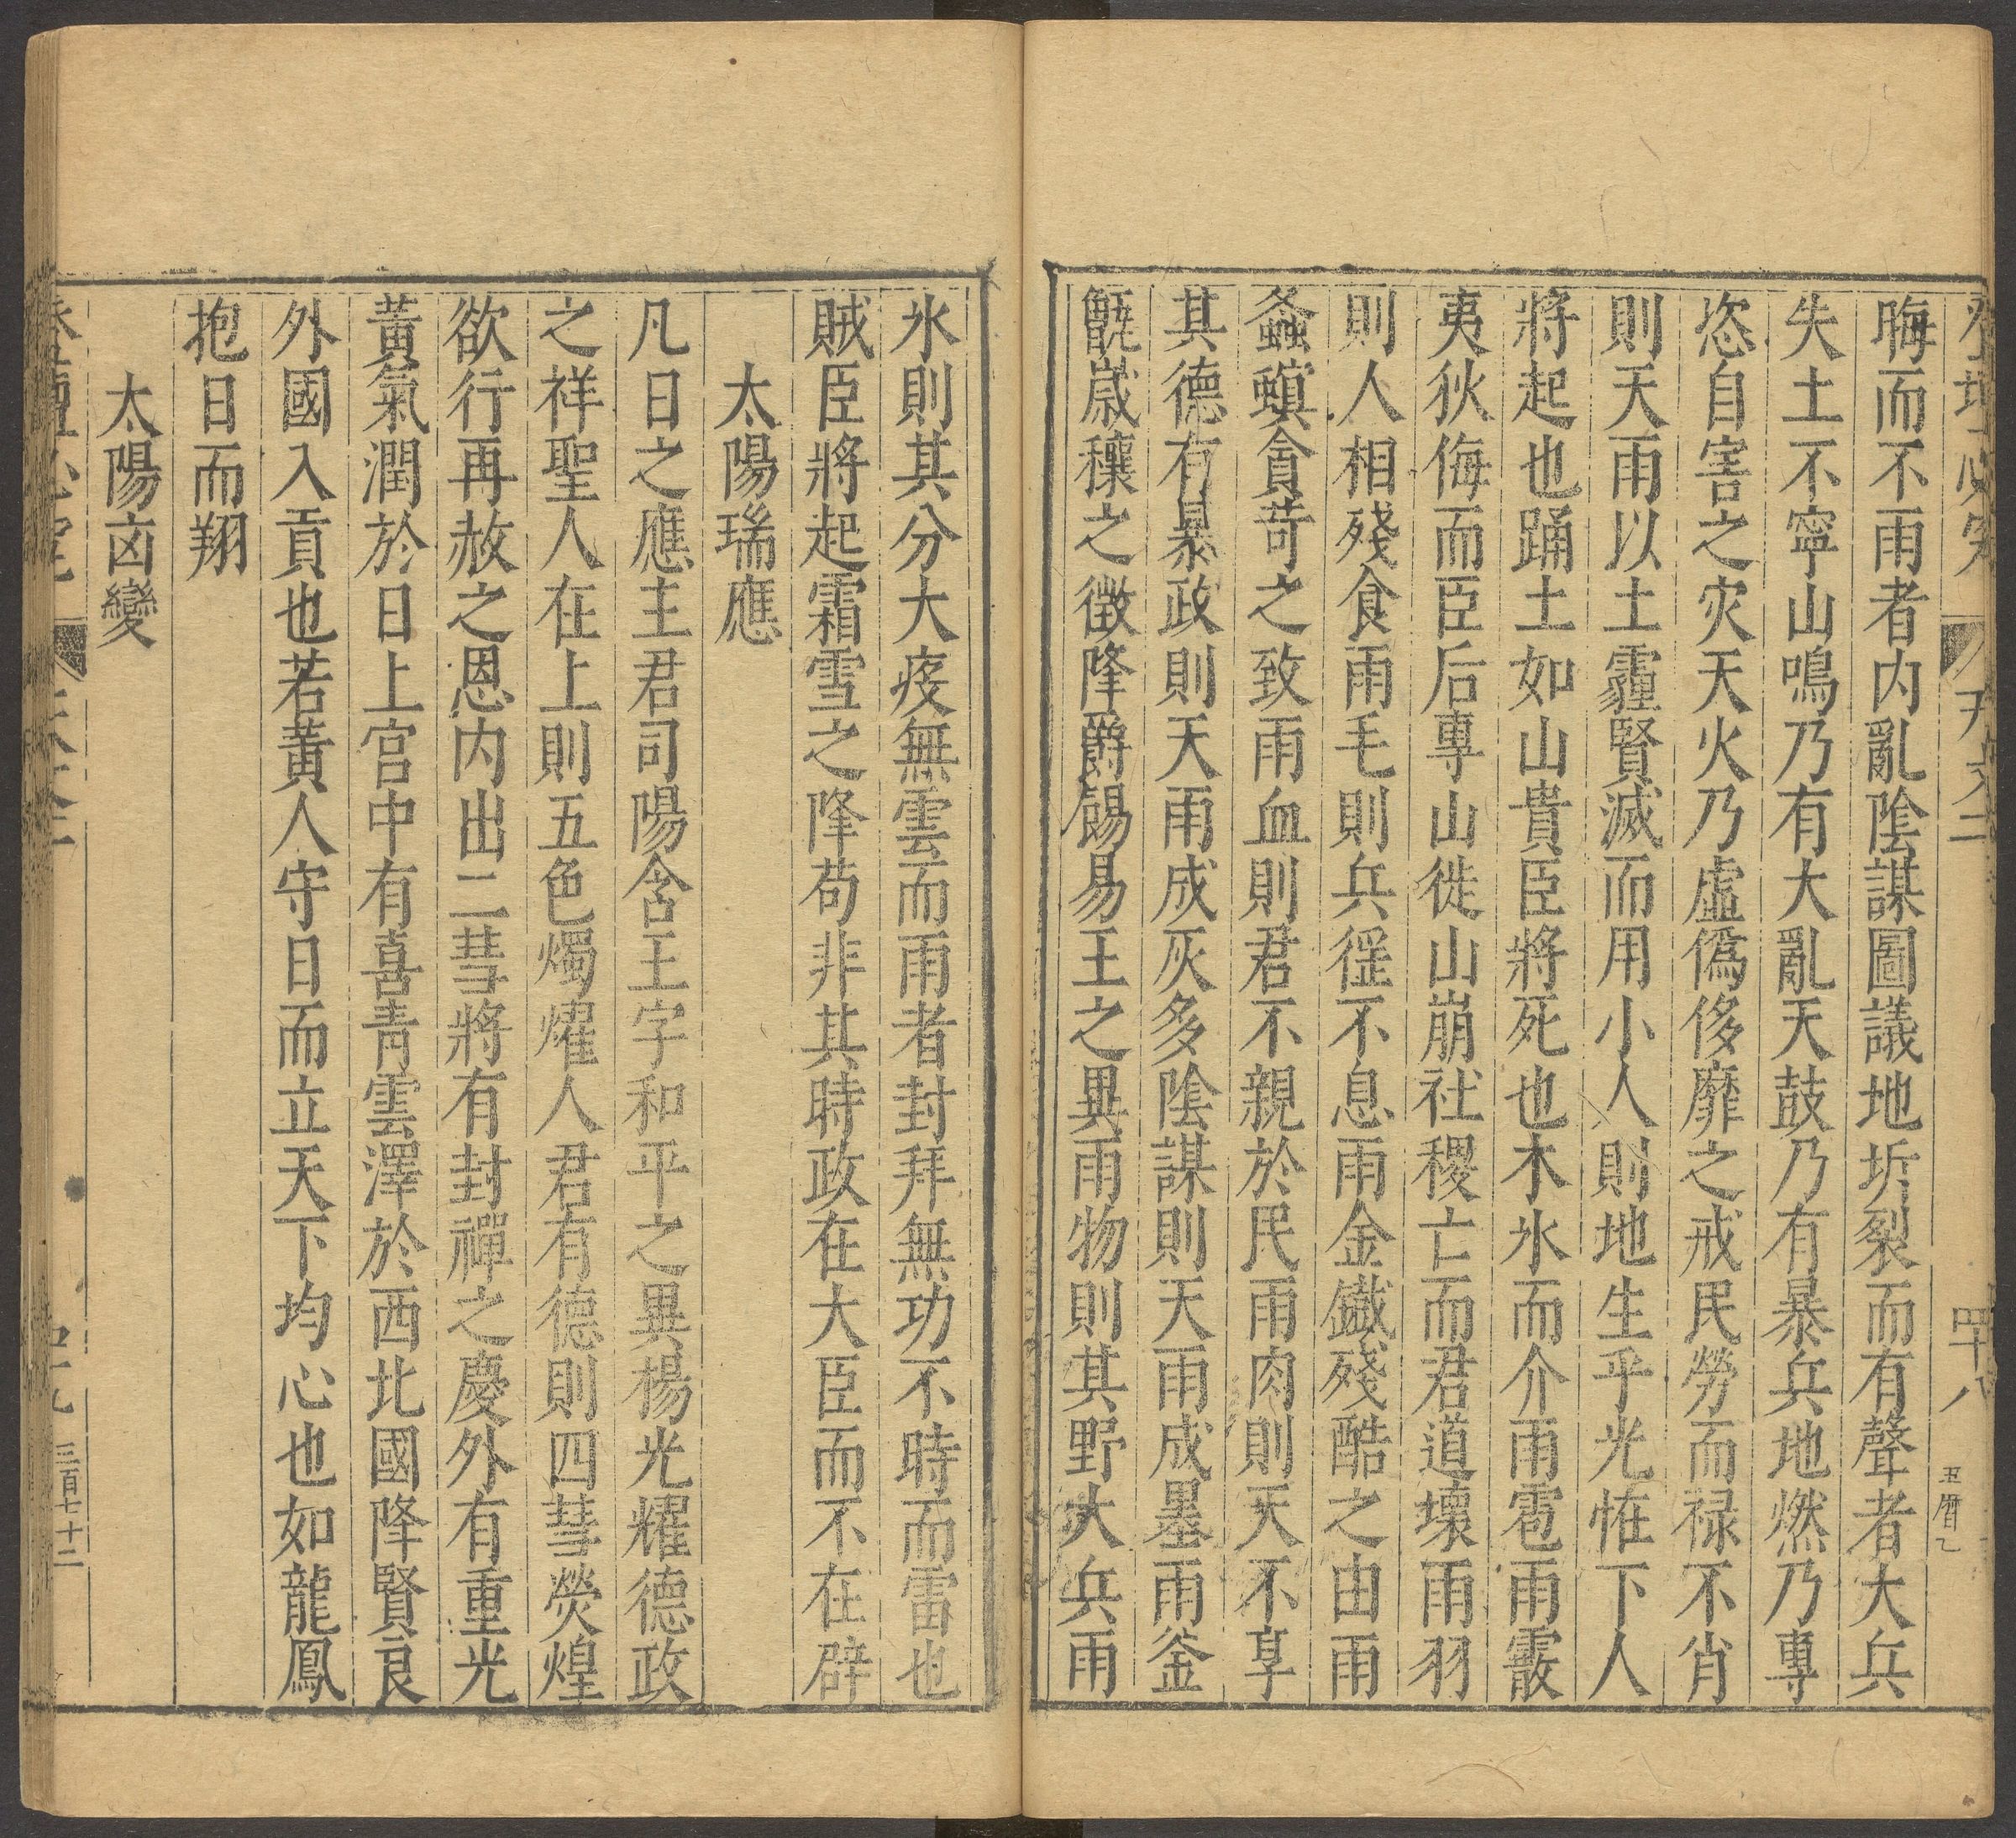 天文二
四十八
五曆乙
晦而不雨者内亂陰謀圖議地坼裂而有聲者大兵
失土不寧山鳴乃有大亂天鼓乃有暴兵地燃乃專
恣自害之灾天火乃虛僞侈靡之戒民勞而禄不肖
則天雨以土霾賢滅而用小人則地生乎光恠下人
將起也踊土如山貴臣將死也木氷而介雨雹雨霰
夷狄侮而臣后專山徙山崩社稷亡而君道壞雨羽
則人相殘食雨毛則兵徭不息雨金鐵殘酷之由雨
螽螟貪苛之致雨血則君不親於民雨肉則天不享
其德有暴政則天雨成灰多陰謀則天雨成墨雨釜
甑歲穰之徴降爵錫易王之異雨物則其野大兵雨
氷則其分大疫無雲而雨者封拜無功不時而雷也
賊臣將起霜雪之降苟非其時政在大臣而不在辟
太陽瑞應
凡日之應主君司陽含王字和平之異楊光耀德政
之祥聖人在上則五色燭燿人君有德則四彗熒煌
欲行再赦之恩内出二彗將有封禪之慶外有重光
黃氣潤於日上宫中有喜青雲澤於西北國降賢良
外國入貢也若黃人守日而立天下均心也如龍鳳
抱日而翔
太陽凶變
三百七十二